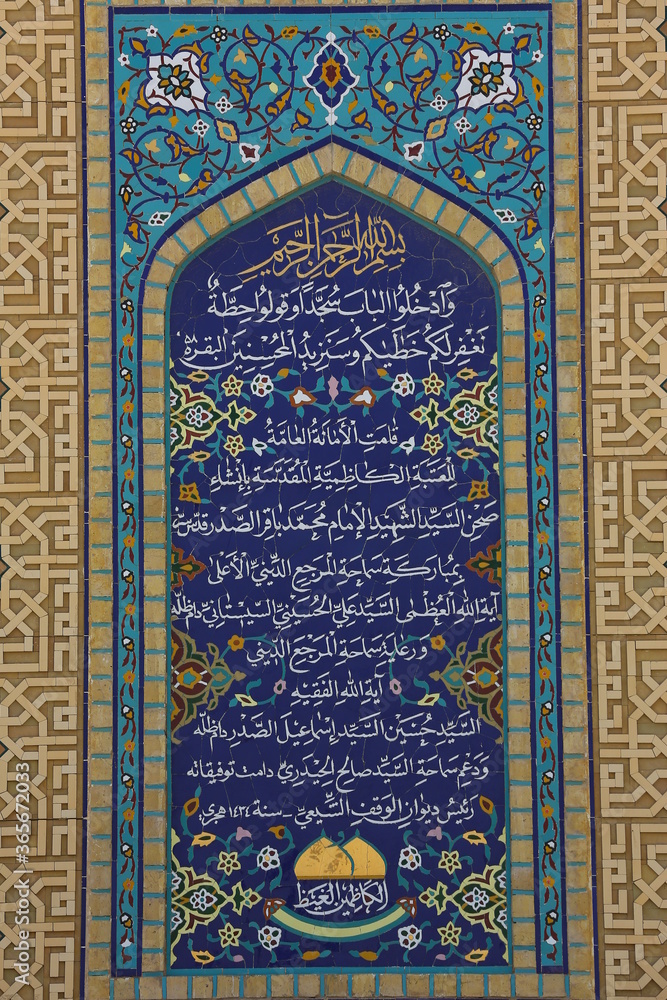 بِسْمِ اللهِ الرَّحْمٰنِ الرَّحِيْمِ
وَادْخُلُوا الْبَابَ سُجَّدًا وَقُولُوا حِطَّةٌ
نَغْفِرْ لَكُمْ خَطَايَاكُمْ وَسَنَزِيدُ الْمُحْسِنِينَ البقرة ٥٨
قَامَتِ الْأَمَانَةُ الْعَامَّةُ
لِلْعَتَبَةِ الْكَاظِمِيَّةِ الْمُقَدَّسَةِ بِإِنْشَاءِ
صَحْنِ السَّيِّدِ الشَّهِيدِ الْإِمَامِ مُحَمَّد بَاقِر الصَّدْر قدس سره
بِمُبَارَكَةِ سَمَاحَةِ الْمَرْجِعِ الدِّينِيِّ الْأَعْلَى
آيَةِ اللهِ الْعُظْمَى السَّيِّدِ عَلِيّ الْحُسَيْنِيّ السِّيسْتَانِيّ دام ظله
وَرِعَايَةِ سَمَاحَةِ الْمَرْجِعِ الدِّينِي
آيَةِ اللهِ الْفَقِيهِ
السَّيِّدِ حُسَيْنِ السَّيِّدِ إِسْمَاعِيلَ الصَّدْرِ دام ظله
وَدَعْمِ سَمَاحَةِ السَّيِّدِ صَالِحِ الْحَيْدَرِيِّ دامت توفيقاته
رَئِيسِ دِيوَانِ الْوَقْفِ الشِّيعِيِّ - سنة ١٤٣٤ هجري
الْكَاظِمِينَ الْغَيْظَ
Adobe Stock | #365672033